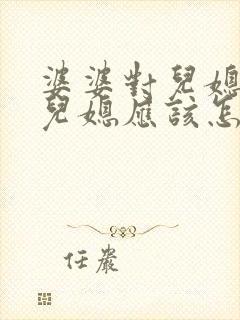 婆婆對兒媳
兒媳應該怎
任嚴